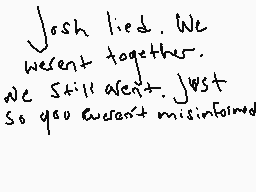 Josh lied. We
werent together.
We still aren't. Just
so you weren't misinformed